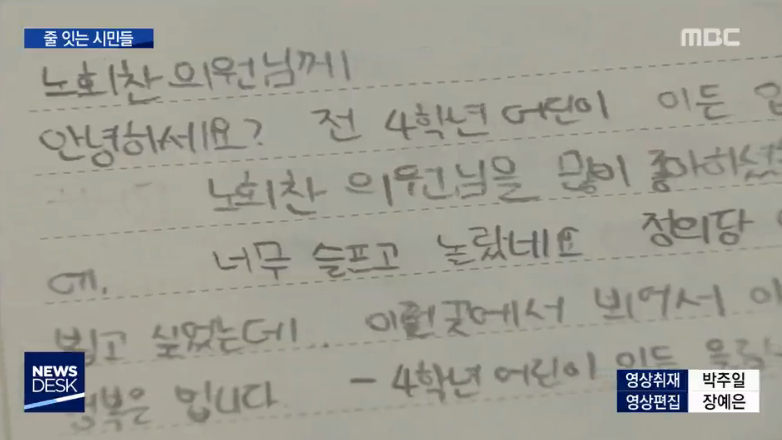 줄 잇는 시민들
MBC
노회찬 의원님께
안녕하세요? 전 4학년 어린이 이든
노회찬 의원님을 많이 좋아하셨
에. 너무 슬프고 놀랐네요 정의당
뵙고 싶었는데.. 이런곳에서 뵈어서
입니다 - 4학년 어린이 이든
NEWS
DESK
영상취재 박주일
영상편집 장예은